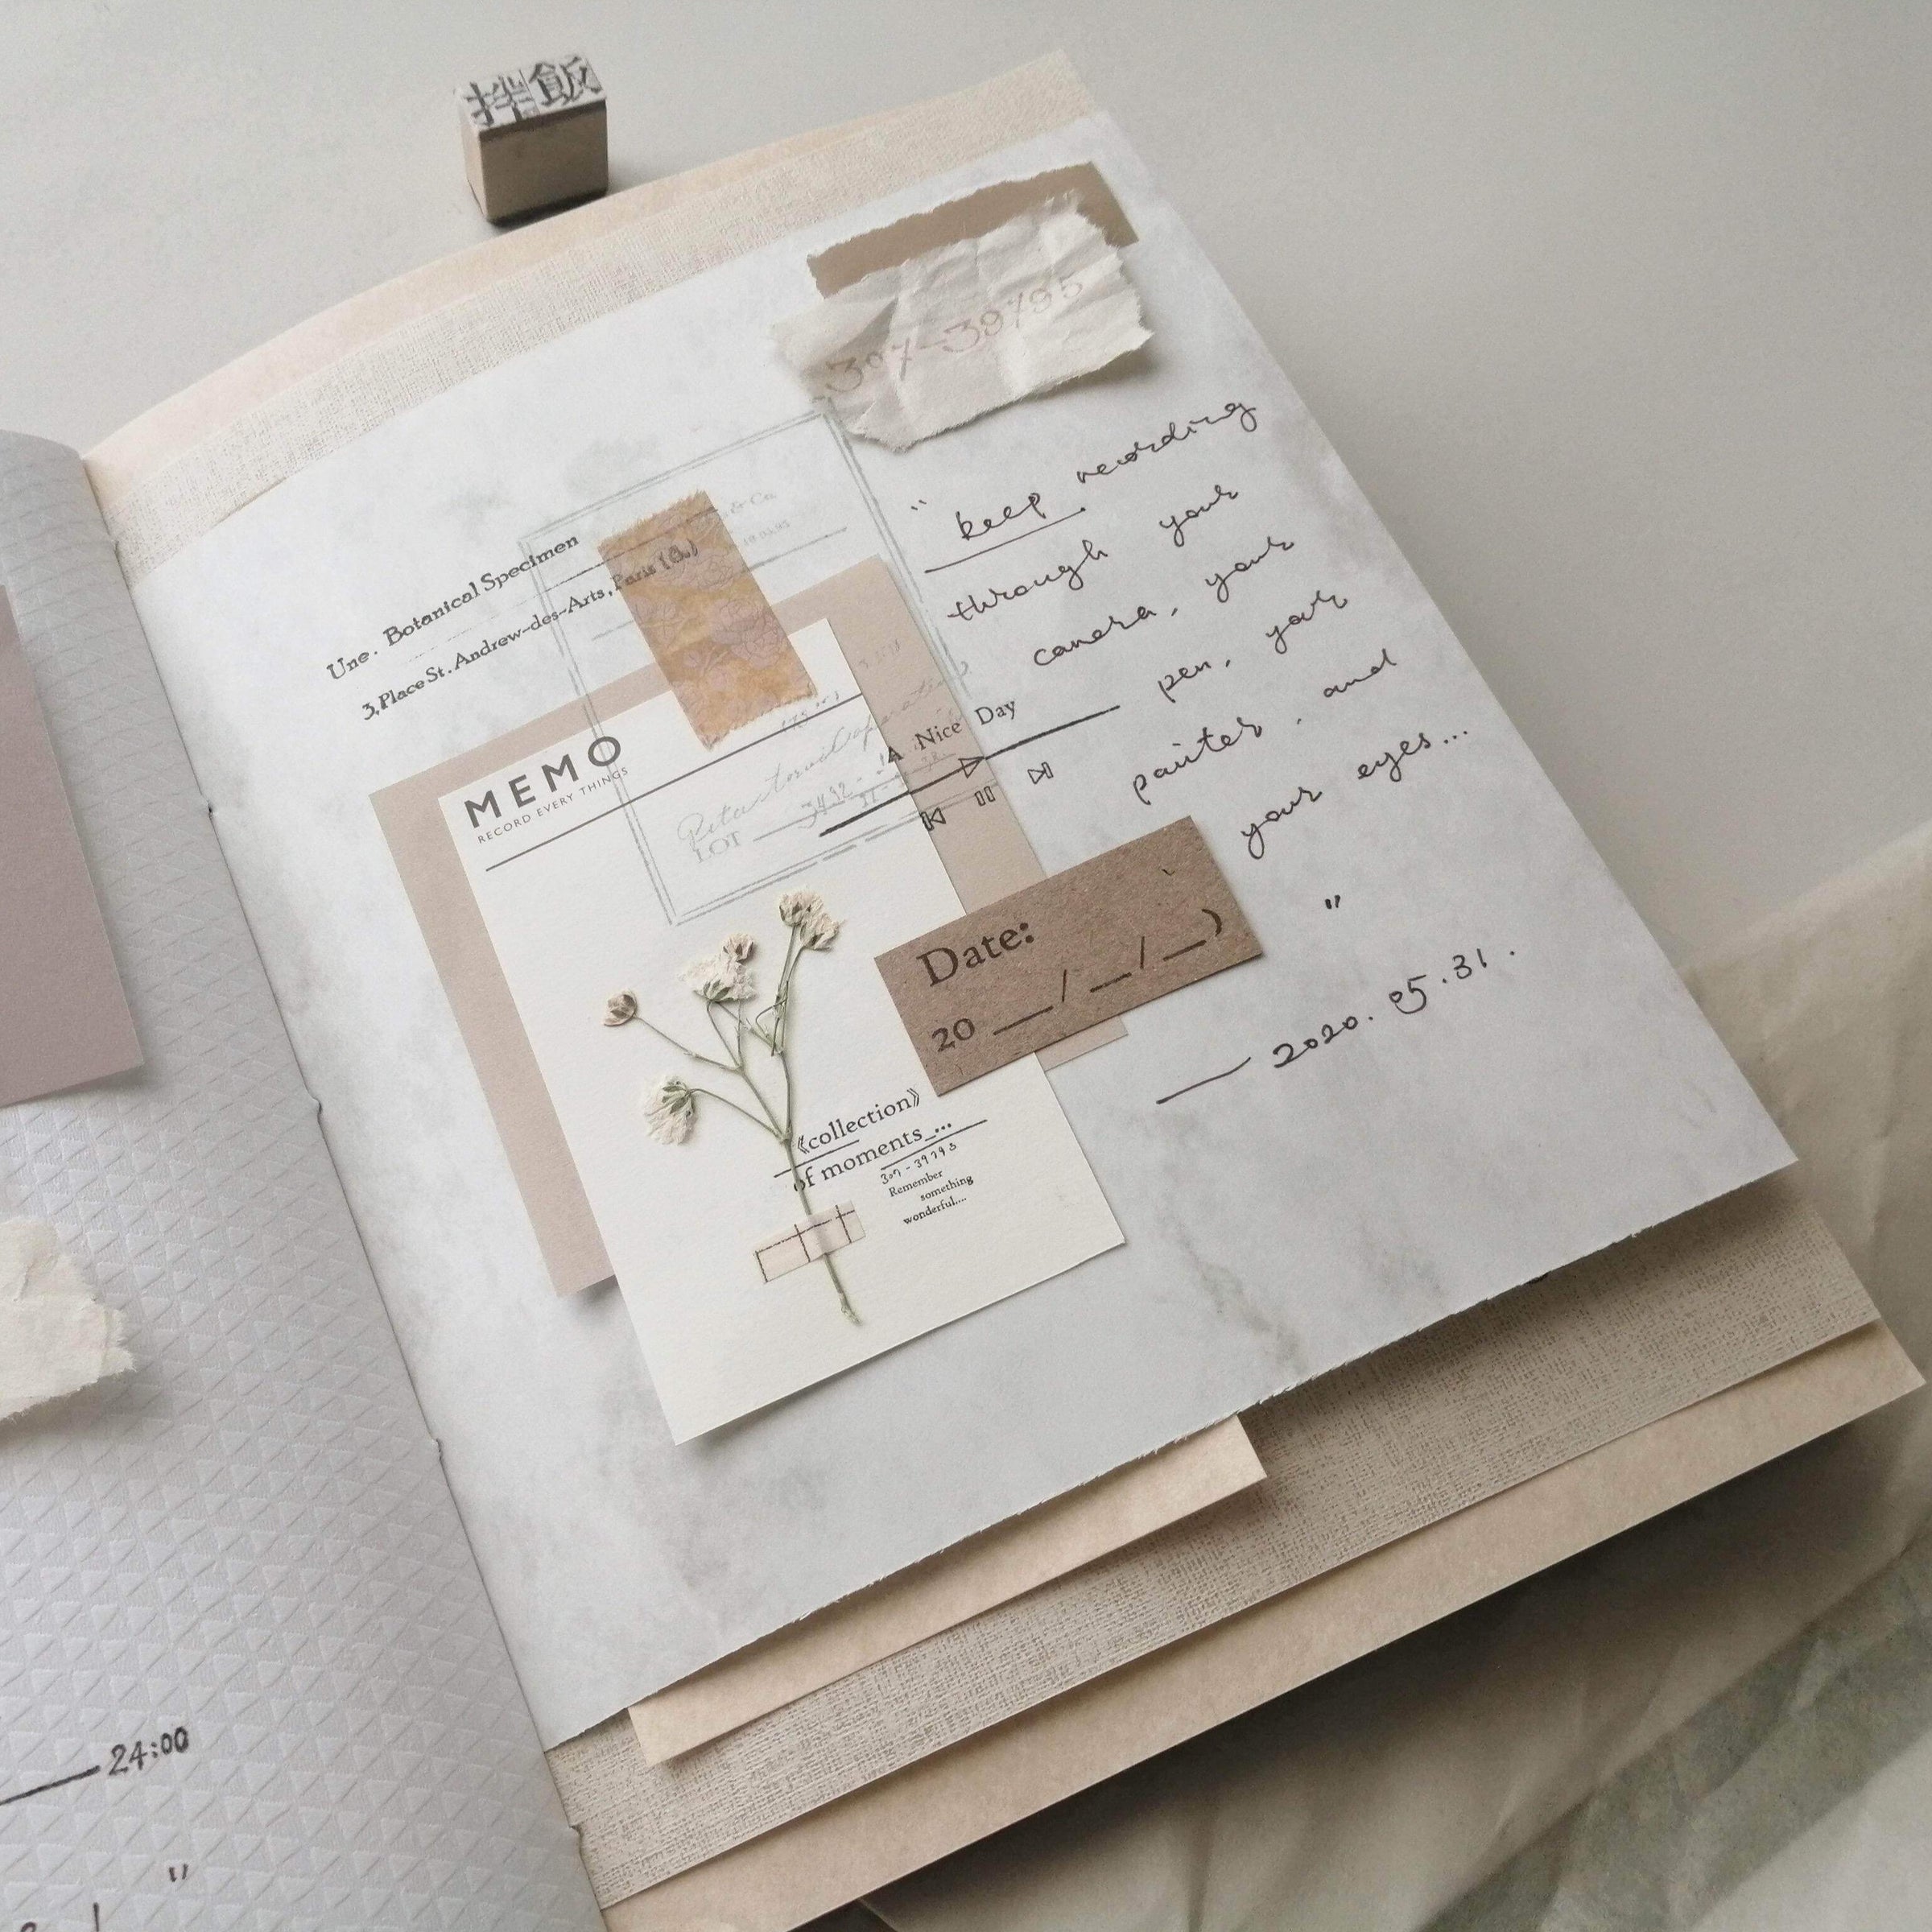 拌飯
307-39795
" keep recording
through your
camera, your
pen, your
painter, and
your eyes...
"
2020.05.31.
& Co.
Une. Botanical Specimen
3, Place St. Andrew-des-Arts, Paris (6.)
MEMO
RECORD EVERY THINGS
A Nice Day
LOT
Date:
20 __/__/__)
《collection》
of moments_...
307-39795
Remember
something
wonderful....
24:00
"